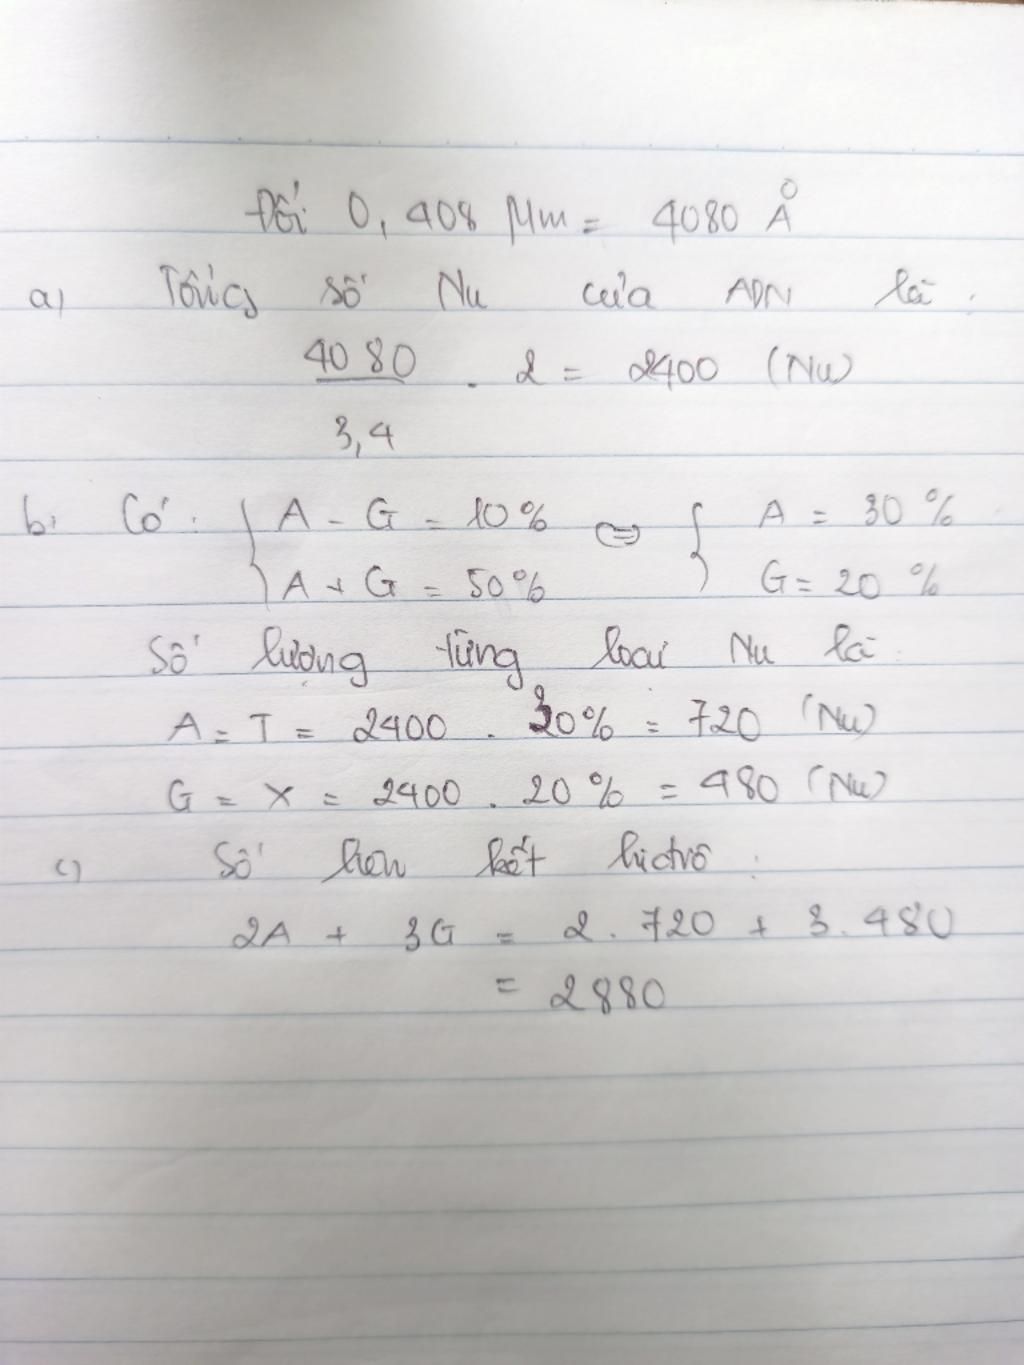 Đổi 0,408 µm = 4080 Å
a) Tổng số Nu của ADN là:
4080
. 2 = 2400 (Nu)
3,4
b) Có: { A - G = 10% ⇔ { A = 30%
A + G = 50% G = 20%
Số lượng từng loại Nu là:
A = T = 2400 . 30% = 720 (Nu)
G = X = 2400 . 20% = 480 (Nu)
c) Số liên kết hiđrô :
2A + 3G = 2. 720 + 3. 480
= 2880